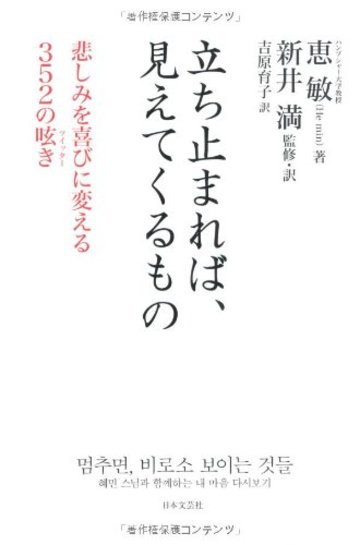 「著作権保護コンテンツ」
ハンプシャー大学教授
恵敏(He min) 著
新井満 監修・訳
吉原育子 訳
立ち止まれば、
見えてくるもの
悲しみを喜びに変える
352の呟き
ツイッター
멈추면, 비로소 보이는 것들
혜민 스님과 함께하는 내 마음 다시보기
日本文芸社
「著作権保護コンテンツ」